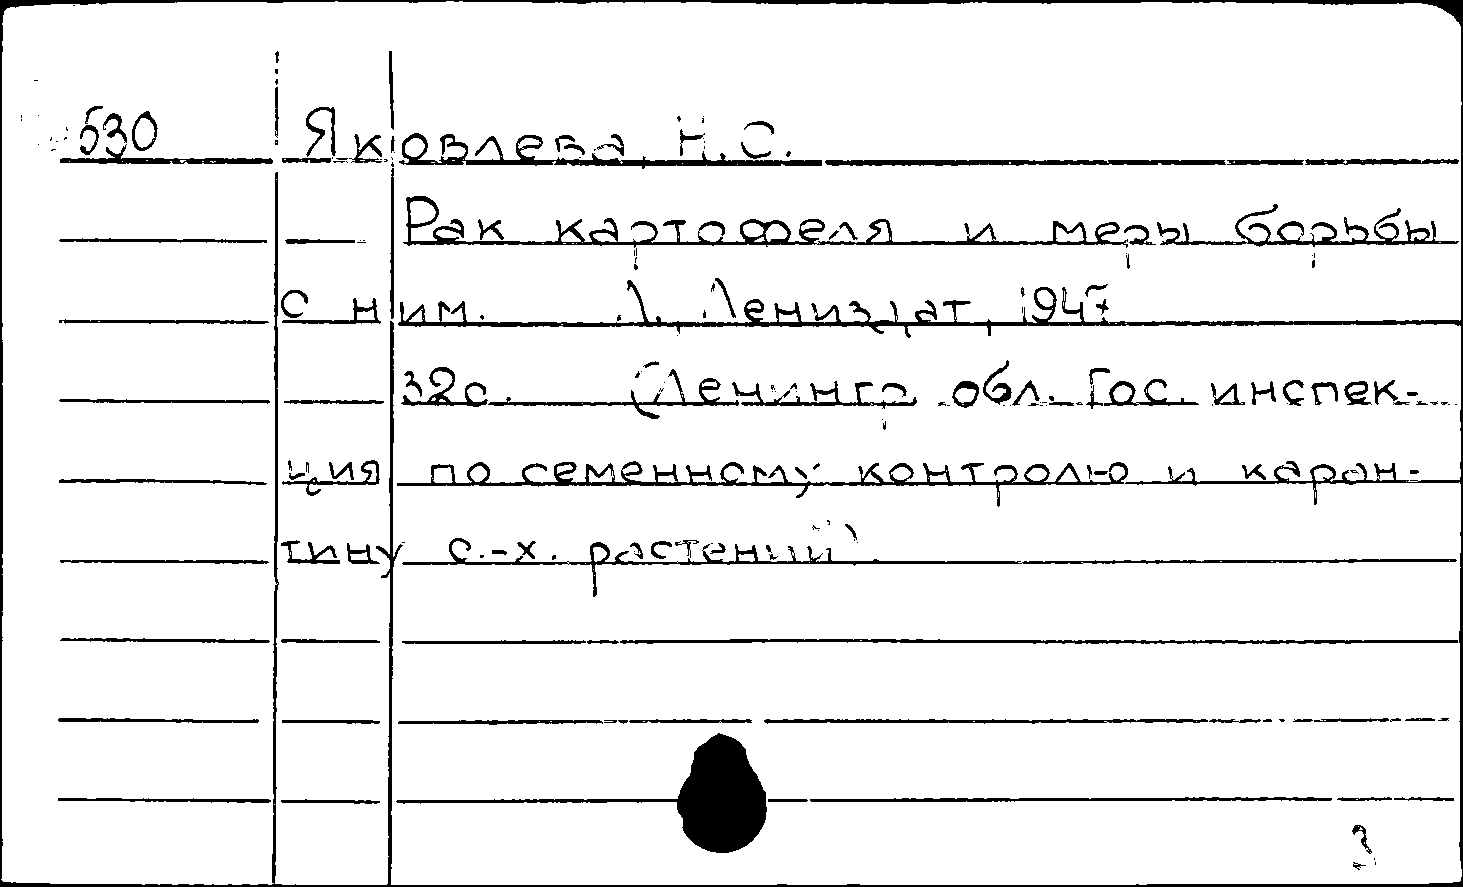 530 Яковлева, Н.С.
Рак картофеля и меры борьбы
с ним. Л., Лениздат, 1947
32с. (Ленингр. обл. Гос. инспек-
ция по семенному контролю и каран-
тину с.-х. растений).
3